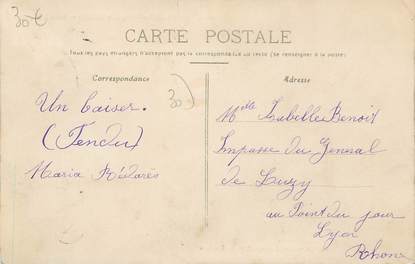 30€
CARTE POSTALE
Tous les pays étrangers n'acceptent pas la correspondance au recto (Se renseigner à la poste)
Correspondance
Adresse
30
Un baiser.
(Tendre)
Maria
Mlle Isabelle Benoit
Impasse du General
de Luzy
au Point du jour
Lyon
Rhone